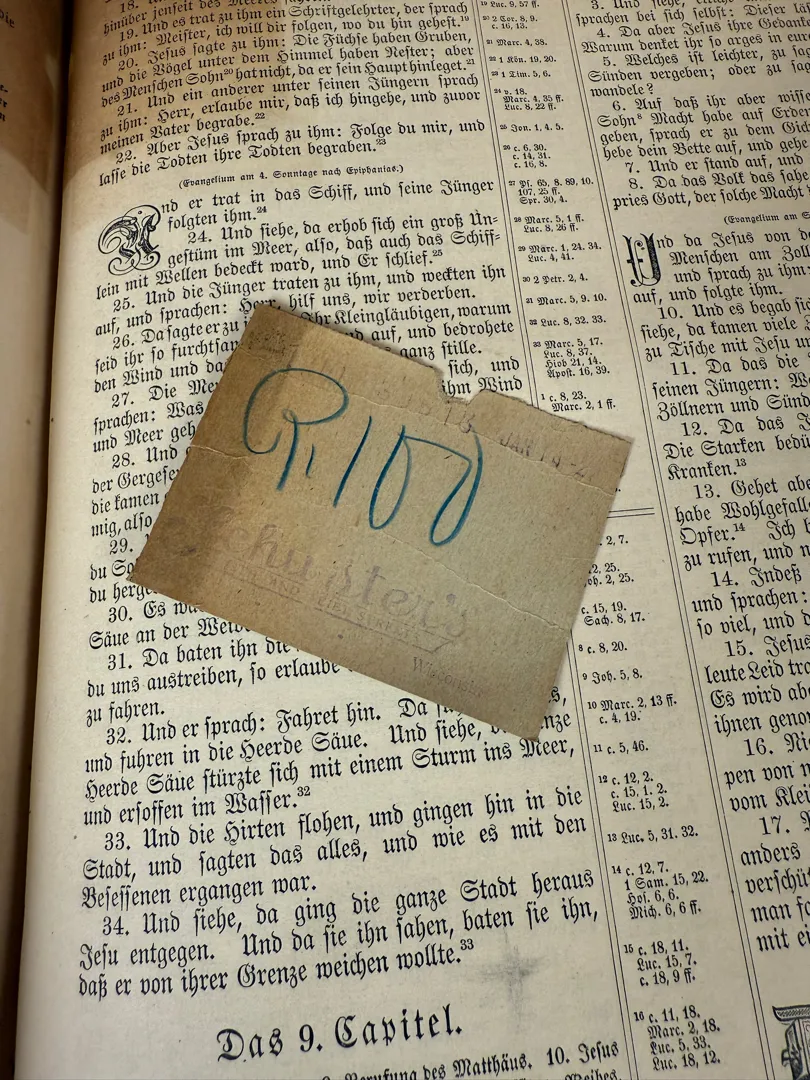 18.
hinüber jenseit des Meeres
19. Und es trat zu ihm ein Schriftgelehrter, der sprach
zu ihm: Meister, ich will dir folgen, wo du hin gehest.¹⁹
20. Jesus sagte zu ihm: Die Füchse haben Gruben,
und die Vögel unter dem Himmel haben Nester; aber
des Menschen Sohn²⁰ hat nicht, da er sein Haupt hinleget.²¹
21. Und ein anderer unter seinen Jüngern sprach
zu ihm: Herr, erlaube mir, daß ich hingehe, und zuvor
meinen Vater begrabe.²²
22. Aber Jesus sprach zu ihm: Folge du mir, und
lasse die Todten ihre Todten begraben.²³
(Evangelium am 4. Sonntage nach Epiphanias.)
Und er trat in das Schiff, und seine Jünger
folgten ihm.²⁴
24. Und siehe, da erhob sich ein groß Un-
gestüm im Meer, also, daß auch das Schiff-
lein mit Wellen bedeckt ward, und Er schlief.²⁵
25. Und die Jünger traten zu ihm, und weckten ihn
auf, und sprachen: Herr, hilf uns, wir verderben.
26. Da sagte er zu Ihr Kleingläubigen, warum
seid ihr so furchtsam und auf, und bedrohete
den Wind und das ganz stille.
27. Die sich, und
sprachen: Was ihm Wind
und Meer
28. Und
der
die kamen
mig, also
29.
du
du
30. Es
Säue an der
31. Da baten ihn die
du uns austreiben, so erlaube
zu fahren.
32. Und er sprach: Fahret hin. Da
und fuhren in die Heerde Säue. Und siehe,
Heerde Säue stürzte sich mit einem Sturm ins Meer,
und ersoffen im Wasser.³²
33. Und die Hirten flohen, und gingen hin in die
Stadt, und sagten das alles, und wie es mit den
Besessenen ergangen war.
34. Und siehe, da ging die ganze Stadt heraus
Jesu entgegen. Und da sie ihn sahen, baten sie ihn,
daß er von ihrer Grenze weichen wollte.³³
Das 9. Capitel.
Berufung des Matthäus. 10. Jesus
JAN
Schuster's
Wisconsin
¹⁹ Luc. 9, 57 ff.
²⁰ 2 Cor. 8, 9.
c. 16, 13.
²¹ Marc. 4, 38.
²² 1 Kön. 19, 20.
²³ 1 Tim. 5, 6.
²⁴ v. 18.
Marc. 4, 35 ff.
Luc. 8, 22 ff.
²⁵ Jon. 1, 4. 5.
²⁶ c. 6, 30.
c. 14, 31.
c. 16, 8.
²⁷ Ps. 65, 8. 89, 10.
107, 25 ff.
Spr. 30, 4.
²⁸ Marc. 5, 1 ff.
Luc. 8, 26 ff.
²⁹ Marc. 1, 24. 34.
Luc. 4, 41.
³⁰ 2 Petr. 2, 4.
³¹ Marc. 5, 9. 10.
³² Luc. 8, 32. 33.
³³ Marc. 5, 17.
Luc. 8, 37.
Hiob 21, 14.
Apost. 16, 39.
¹ c. 8, 23.
Marc. 2, 1 ff.
2, 7.
2, 25.
2, 25.
c. 15, 19.
Sach. 8, 17.
⁸ c. 8, 20.
⁹ Joh. 5, 8.
¹⁰ Marc. 2, 13 ff.
c. 4, 19.
¹¹ c. 5, 46.
¹² c. 12, 2.
c. 15, 1. 2.
Luc. 15, 2.
¹³ Luc. 5, 31. 32.
¹⁴ c. 12, 7.
1 Sam. 15, 22.
Hos. 6, 6.
Mich. 6, 6 ff.
¹⁵ c. 18, 11.
Luc. 15, 7.
c. 18, 9 ff.
¹⁶ c. 11, 18.
Marc. 2, 18.
Luc. 5, 33.
Luc. 18, 12.
3. Und siehe,
sprachen bei sich selbst: Dieser
4. Da aber Jesus ihre
Warum denket ihr so arges in
5. Welches ist leichter, zu
Sünden vergeben; oder zu
wandele?
6. Auf daß ihr aber
Sohn⁸ Macht habe auf Erden
geben, sprach er zu dem
hebe dein Bette auf, und gehe
7. Und er stand auf, und
8. Da das Volk das
pries Gott, der solche Macht
(Evangelium am
Und da Jesus von
Menschen am
und sprach zu ihm:
auf, und folgte ihm.
10. Und es begab
siehe, da kamen viele
zu Tische mit Jesu
11. Da das die
seinen Jüngern:
Zöllnern und
12. Da das
Die Starken
Kranken.¹³
13. Gehet
habe
Opfer.¹⁴ Ich
zu rufen, und
14. Indeß
und sprachen:
so viel, und
15. Jesus
leute Leid
Es wird
ihnen
16.
pen von
vom
17.
anders
man
mit